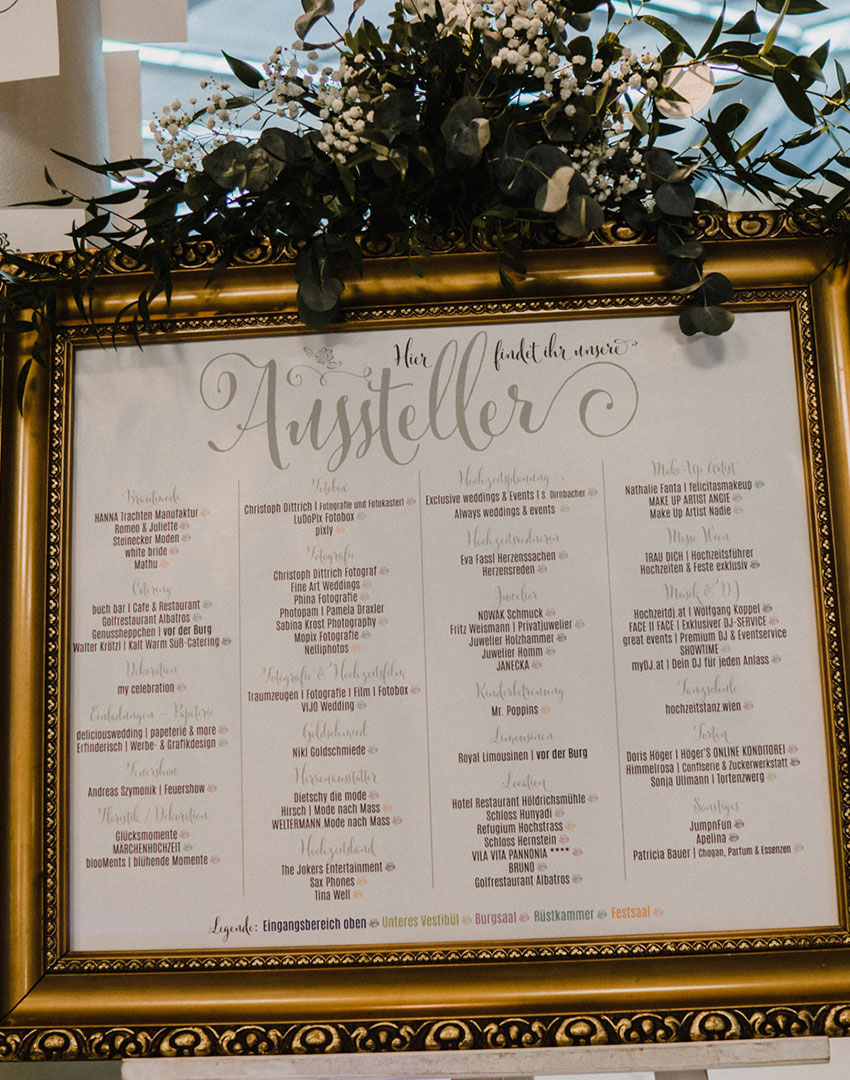 Hier findet ihr unsere
Aussteller
Brautmode
HANNA Trachten Manufaktur
Romeo & Juliette
Steinecker Moden
white bride
Mathu
Catering
buch bar | Cafe & Restaurant
Golfrestaurant Albatros
Genussheppchen | vor der Burg
Walter Krötzl | Kalt Warm Süß-Catering
Dekoration
my celebration
Einladungen - Papeterie
deliciouswedding | papeterie & more
Erfinderisch | Werbe- & Grafikdesign
Feuershow
Andreas Szymonik | Feuershow
Floristik / Dekoration
Glücksmomente
MÄRCHENHOCHZEIT
blooMents | blühende Momente
Fotobox
Christoph Dittrich | Fotografie und Fotokasterl
LuDoPix Fotobox
pixly
Fotografie
Christoph Dittrich Fotograf
Fine Art Weddings
Phina Fotografie
Photopam | Pamela Draxler
Sabina Krost Photography
Mopix Fotografie
Nelliphotos
Fotografie & Hochzeitsfilm
Traumzeugen | Fotografie | Film | Fotobox
VIJO Wedding
Goldschmied
Nikl Goldschmiede
Herrenausstatter
Dietschy die mode
Hirsch | Mode nach Mass
WELTERMANN Mode nach Mass
Hochzeitsband
The Jokers Entertainment
Sax Phones
Tina Well
Hochzeitsplanung
Exclusive weddings & Events | S. Dirnbacher
Always weddings & events
Hochzeitsrednerin
Eva Fassl Herzenssachen
Herzensreden
Juwelier
NOWAK Schmuck
Fritz Weismann | Privatjuwelier
Juwelier Holzhammer
Juwelier Homm
JANECKA
Kinderbetreuung
Mr. Poppins
Limousinen
Royal Limousinen | vor der Burg
Location
Hotel Restaurant Höldrichsmühle
Schloss Hunyadi
Refugium Hochstrass
Schloss Hernstein
VILA VITA PANNONIA ****
BRUNO
Golfrestaurant Albatros
Make-Up Artist
Nathalie Fanta | felicitasmakeup
MAKE UP ARTIST ANGIE
Make Up Artist Nadie
Messe Wien
TRAU DICH | Hochzeitsführer
Hochzeiten & Feste exklusiv
Musik & DJ
Hochzeitdj.at | Wolfgang Koppel
FACE II FACE | Exklusiver DJ-SERVICE
great events | Premium DJ & Eventservice
SHOWTIME
myDJ.at | Dein DJ für jeden Anlass
Tanzschule
hochzeitstanz.wien
Torten
Doris Höger | Höger'S ONLINE KONDITOREI
Himmelrosa | Confiserie & Zuckerwerkstatt
Sonja Ullmann | Tortenzwerg
Sonstiges
JumpnFun
Apelina
Patricia Bauer | Chogan, Parfum & Essenzen
Legende: Eingangsbereich oben Unteres Vestibül Burgsaal Rüstkammer Festsaal